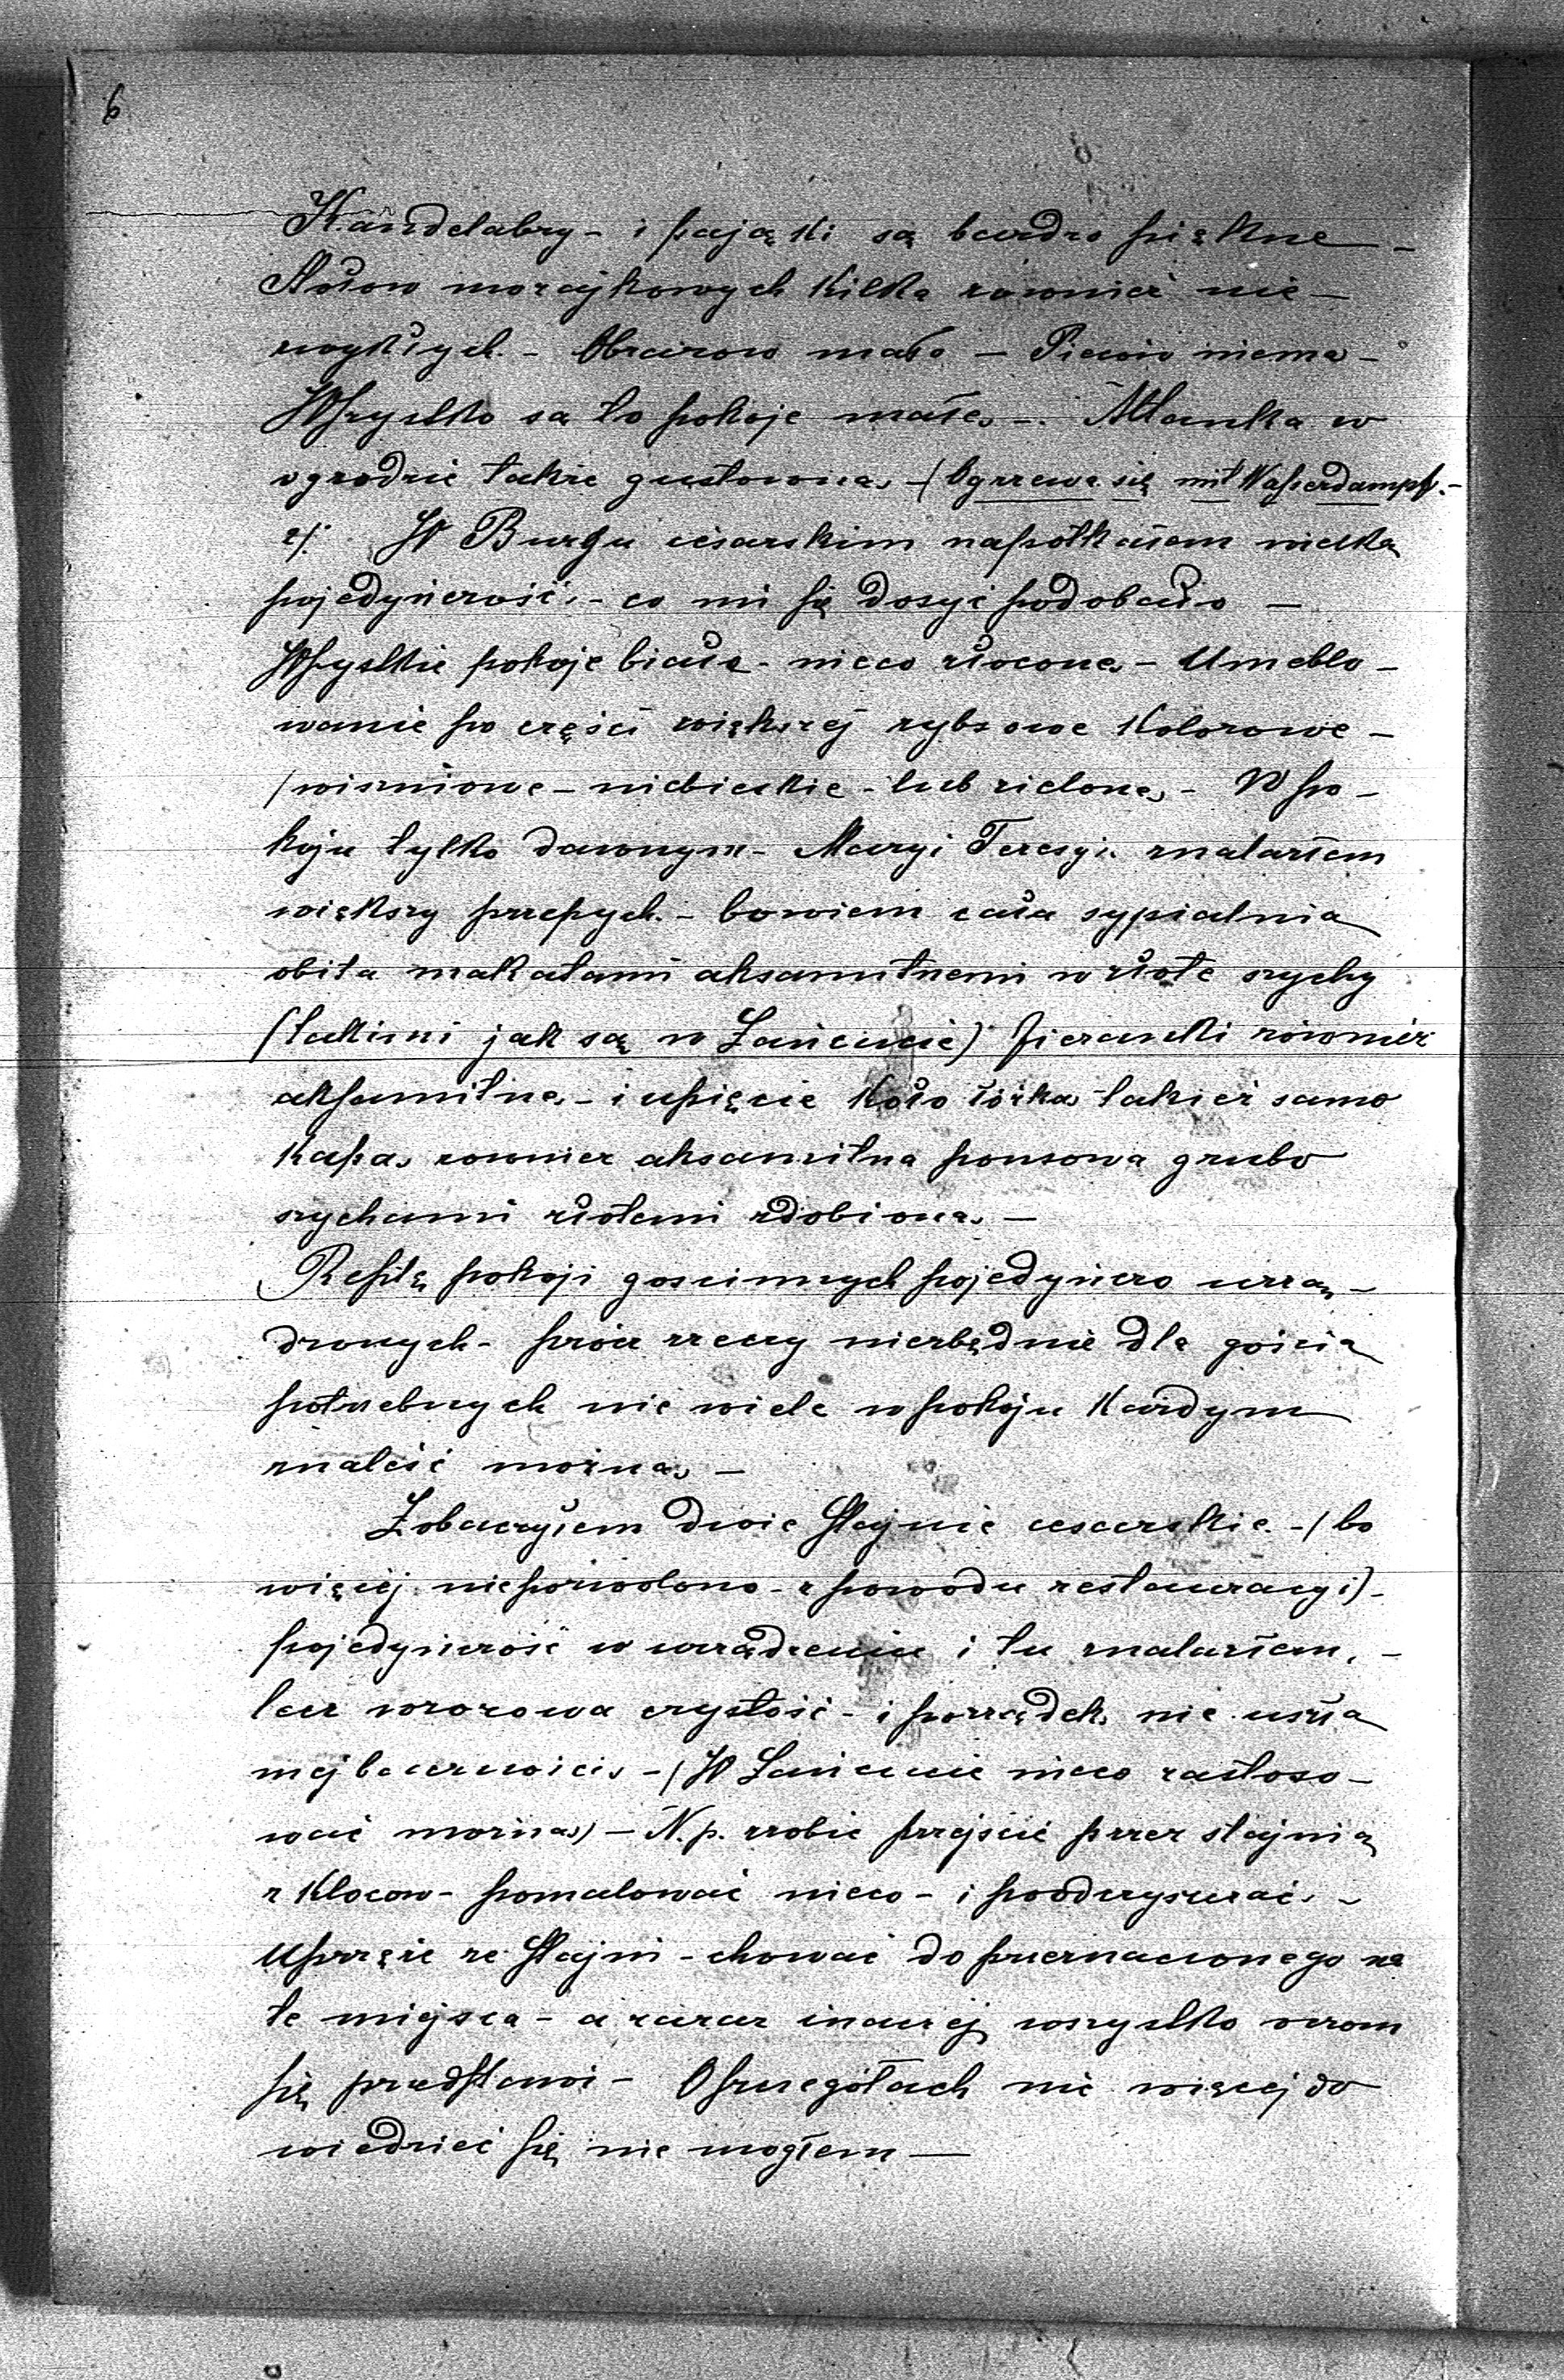 6
Kandelabry - i pająki są bardzo piękne -
Stołow mozajkowych kilka rownież nie -
zwykłych. - Obrazow mało - Piecow niema -
Wszystko są to pokoje małe. - Altanka w
ogrodzie także gustowna. - (Ogrzewa się mit Wasserdampf. -
2/. W Burgu cesarskim napotkałem wielką
pojedyńczość, - co mi się dosyć podobało -
Wszystkie pokoje białe - nieco złocone. - Umeblo -
wanie po części większej rybsowe kolorowe -
/wisniowe - niebieskie - lub zielone. - W po -
koju tylko dawnym - Maryi Teresyi znalazłem
większy przepych. - bowiem cała sypialnia
obita makatami aksamitnemi w złote szychy
(takimi jak są w Łańcucie) firanki rówmież
aksamitne, - i upięcie koło łóżka takież samo
kapa, rownież aksamitna ponsowa grubo
szychami złotemi zdobiona. -
Resztę pokoji goscinnych pojedyńczo urzą -
dzonych - prócz rzeczy niezbędnie dla gościa
potrzebnych nie wiele w pokoju każdym
znaleść można. -
Zobaczyłem dwie stajnie cesarskie. - (bo
więcej niepozwolono - z powodu restauracyi) -
pojedyńczość w urządzeniu i tu znalazłem, -
lecz wzorowa czystość - i porządek, nie uszła
mej baczności. - (W Łańcucie nieco zastoso -
wać można) - N.p. zrobić przejście przez stajnią
z klocow - pomalować nieco - i pooczyszczać. -
Uprzęże ze stajni - chować do przeznaczonego na
te miejsca - a zaraz inaczej wszystko oczom
się przedstawi - O szczegółach nic więcej do
wiedzieć się nie mogłem -